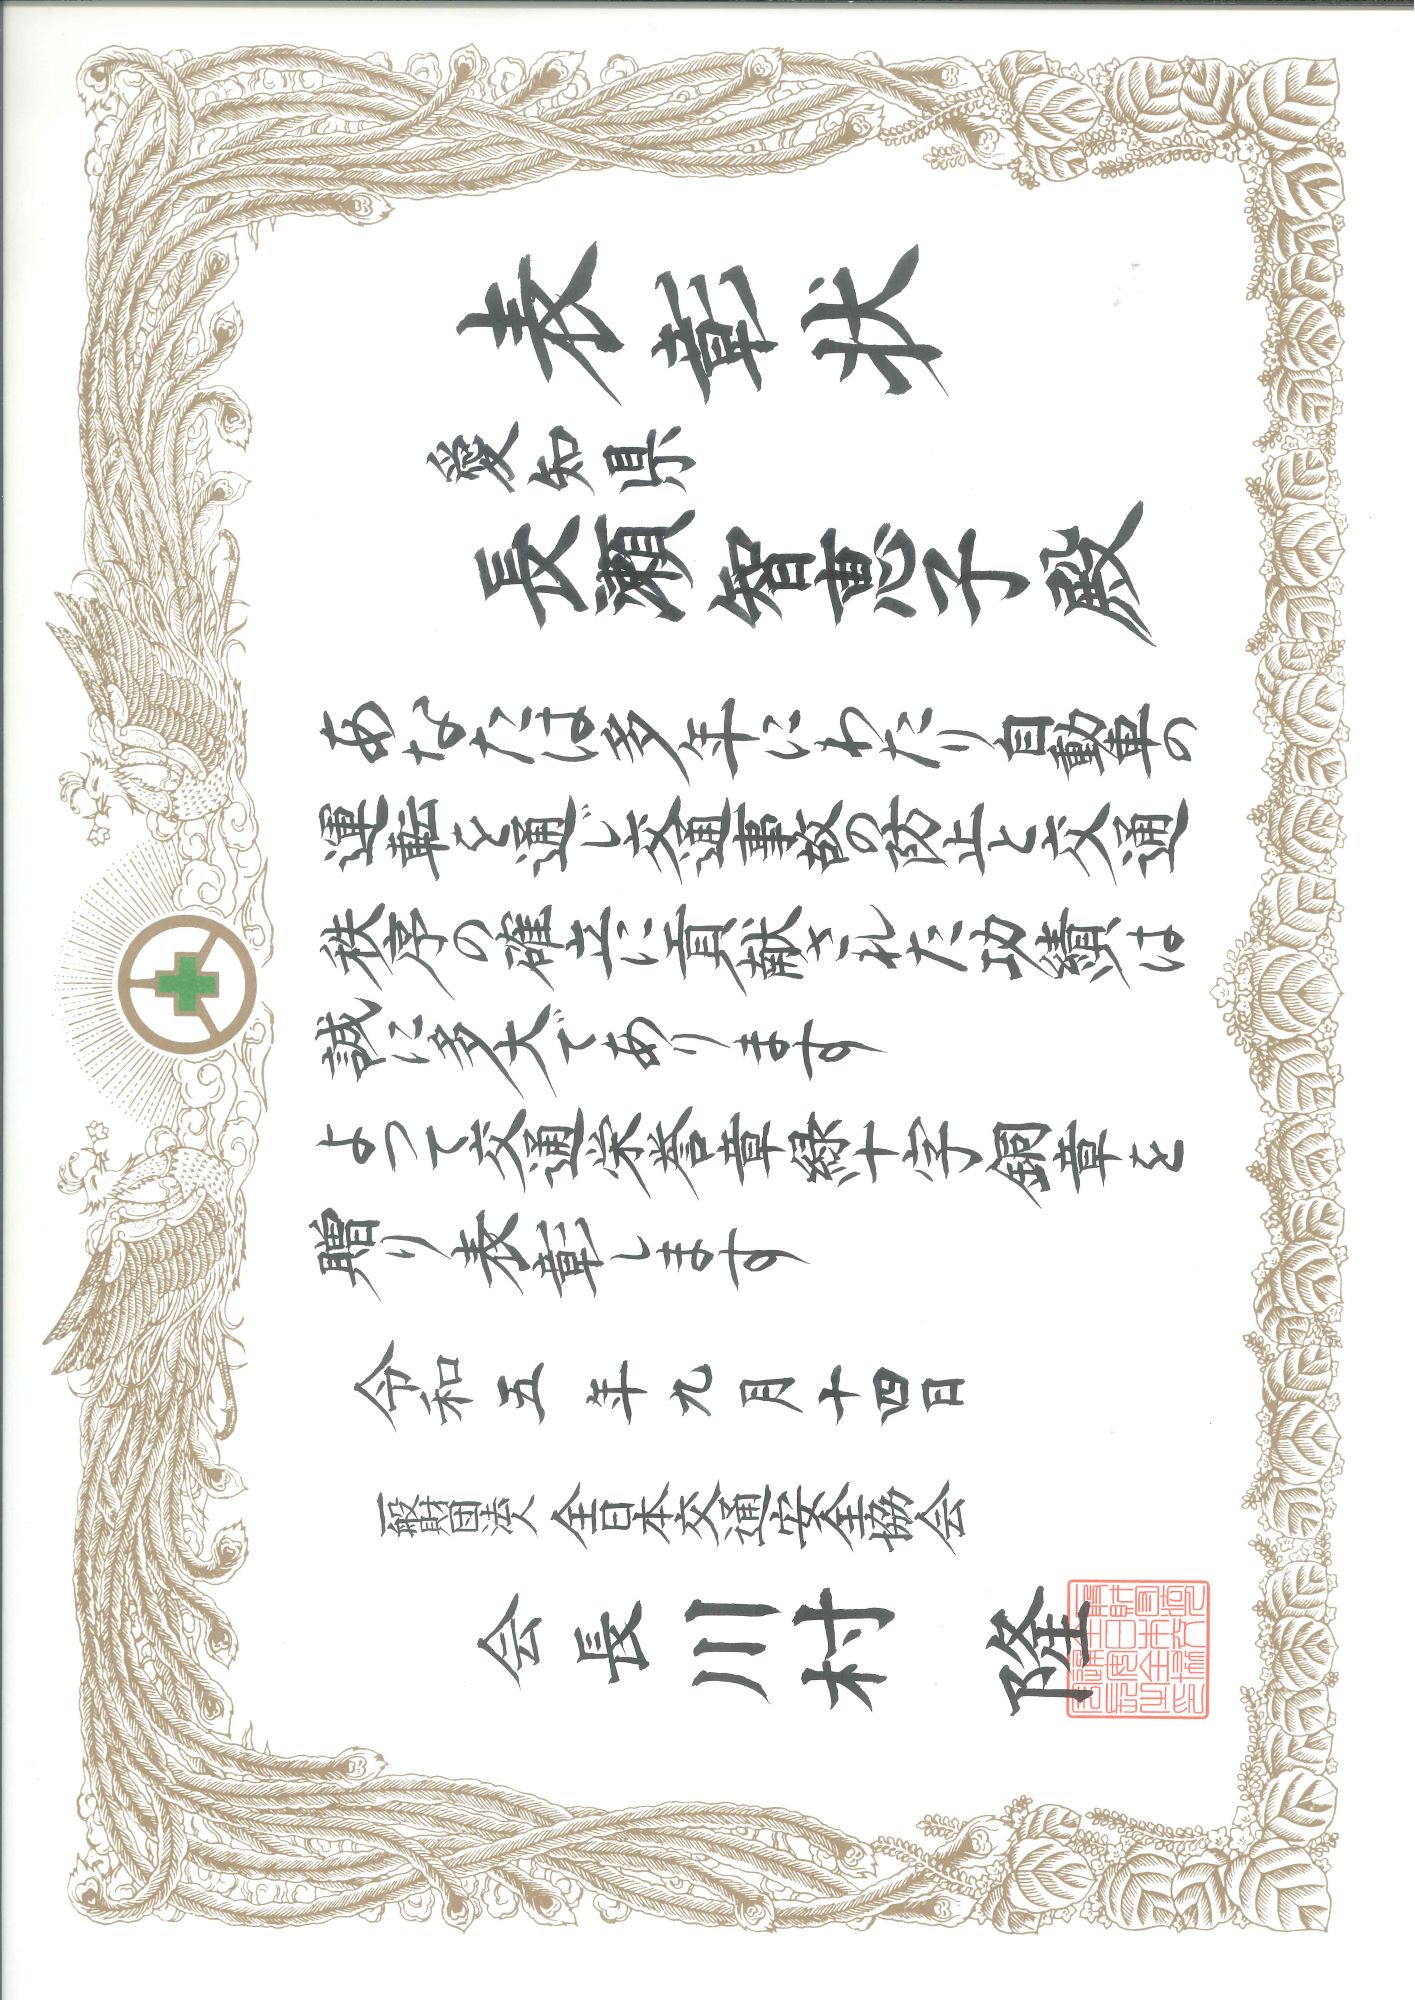 表彰状
愛知県
長瀬智恵子殿
あなたは多年にわたり自動車の
運転を通じ交通事故の防止と交通
秩序の確立に貢献された功績は
誠に多大であります
よって交通栄誉章緑十字銅章を
贈り表彰します
令和五年九月十四日
一般財団法人 全日本交通安全協会
会長 川村 隆